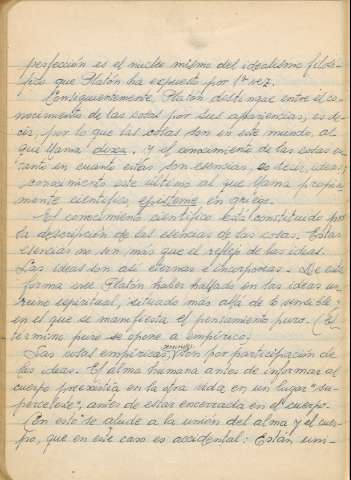 perfección es el nucleo mismo del idealismo filosó-
fico que Platón ha expuesto por 1ª vez.
Consiguientemente, Platón distingue entre el co-
nocimiento de las cosas por sus apariencias, es de-
cir, por lo que las cosas son en este mundo, al
que llama doxa. Y el conocimiento de las cosas en
tanto en cuanto estas son esencias, es decir, ideas;
conocimiento este ultimo al que llama propia-
mente cientifico, episteme en griego.
El conocimiento cientifico está constituido por
la descripción de las esencias de las cosas. Estas
esencias no son más que el reflejo de las ideas.
Las ideas son asi eternas e incorporeas. De esta
forma cree Platón haber hallado en las ideas un
reino espiritual, situado más allá de lo sensible y
en el que se manifiesta el pensamiento puro. (El
termino puro se opone a empirico)
Las cosas empiricas, son por participación de
las ideas. El alma humana antes de informar al
cuerpo preexistia en la otra vida en un lugar "su-
perceleste", antes de estar encerrada en el cuerpo.
Con esto se alude a la union del alma y el cuer-
po, que en este caso es accidental: Están uni-